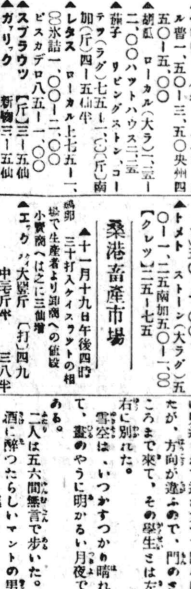 ル當一、五〇—三、五〇央州四
五〇—五、〇〇
▲胡瓜　ローカル(大ラ)
二、〇〇ハットハウス
▲茄子　リビングストン、コー
加(斤)四—五仙半
▲レタス　ローカル上七五—一、
〇〇氷詰一、〇〇
ピスカデロ八五—一、〇〇
▲スプラウツ(斤)三—五仙
▲ガーリック　新物三—五仙
▲トメト　ストーン(大ラグ)五
〇—一、二五南加五〇—二、〇〇
【クレツ】二五—七五
桑港畜產市場
▲十一月十九日午後四時
鷄卵　三十打入
塲で生產者より卸商への値段
小賣商へはこれに三仙增
▲エッグ　大堅斤【打】四九
中堅斤半　三八半
たが、方向が違ふので、門の
ころまで來て、その學生とは左
右に別れた。
雪空は、いつかすつかり晴れ
て、晝のやうに明かるい月夜で
ある。
二人は五六間無言で歩いた。
酒に醉つたらしいマントの男